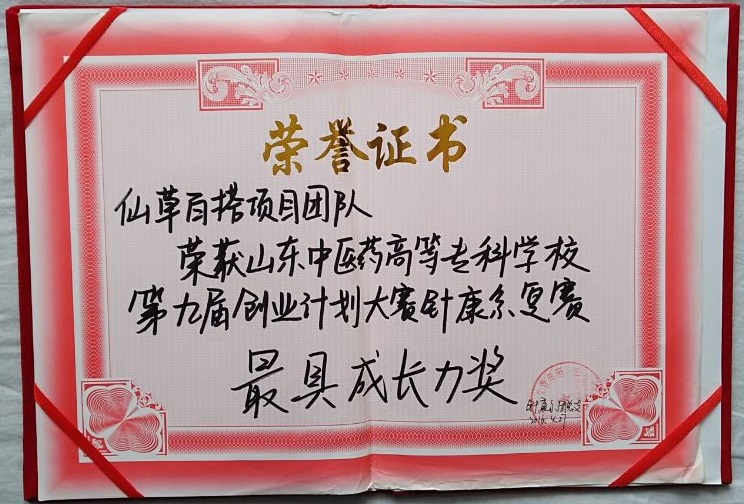 荣誉证书
仙草百搭项目团队
荣获山东中医药高等专科学校
第九届创业计划大赛针康系复赛
最具成长力奖